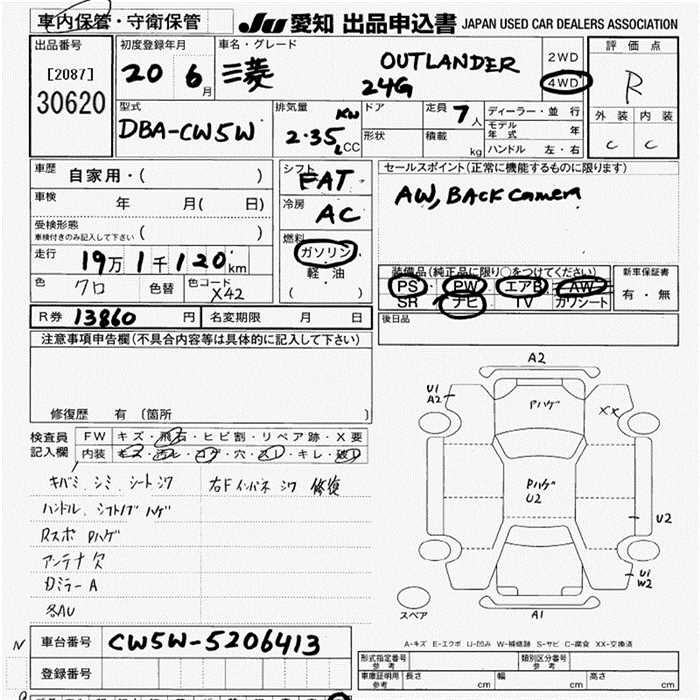 車内保管・守衛保管
JU 愛知 出品申込書 JAPAN USED CAR DEALERS ASSOCIATION
出品番号
[2087]
30620
初度登録年月
20 6月
車名・グレード
三菱 OUTLANDER
24G
2WD
4WD
評価点
R
外装 内装
C C
型式
DBA-CW5W
排気量
KW
2.35 L CC
ドア
形状
定員 7人
積載 kg
ディーラー・並行
モデル年式 年
ハンドル 左・右
車歴 自家用・( )
車検 年 月( 日)
受検形態
車検付きのみ記入して下さい ( )
走行 19万1千120km
色 クロ 色替 色コード X42
シフト
FAT
冷房
AC
燃料
ガソリン
軽油
( )
セールスポイント(正常に機能するものに限ります)
AW, BACK camera
装備品(純正品に限り○をつけてください)
PS・PW・エアB・AW
SR・ナビ・TV・ガワシート
新車保証書
有・無
後日品
R券 13860 円 名変期限 月 日
注意事項申告欄(不具合内容等は具体的に記入して下さい)
修復歴 有 〔箇所 〕
検査員記入欄
FW キズ・飛石・ヒビ割・リペア跡・X要
内装 キズ・汚レ・コゲ・穴・スレ・キレ・破レ
キバミ、シミ、シートシワ
右Fインパネ シワ 修復
ハンドル、シフトノブ ハゲ
Rスポ Pハゲ
アンテナ欠
Dミラー A
各AU
A2
U1
A2
Pハゲ
XX
Pハゲ
U2
U2
U1
W2
A1
スペア
A-キズ E-エクボ U-凹み W-補修跡 S-サビ C-腐食 XX-交換済
N
車台番号 CW5W-5206413
登録番号
形式指定番号
参考
類別区分番号
参考
車庫証明用
参考
長さ cm
幅 cm
高さ cm